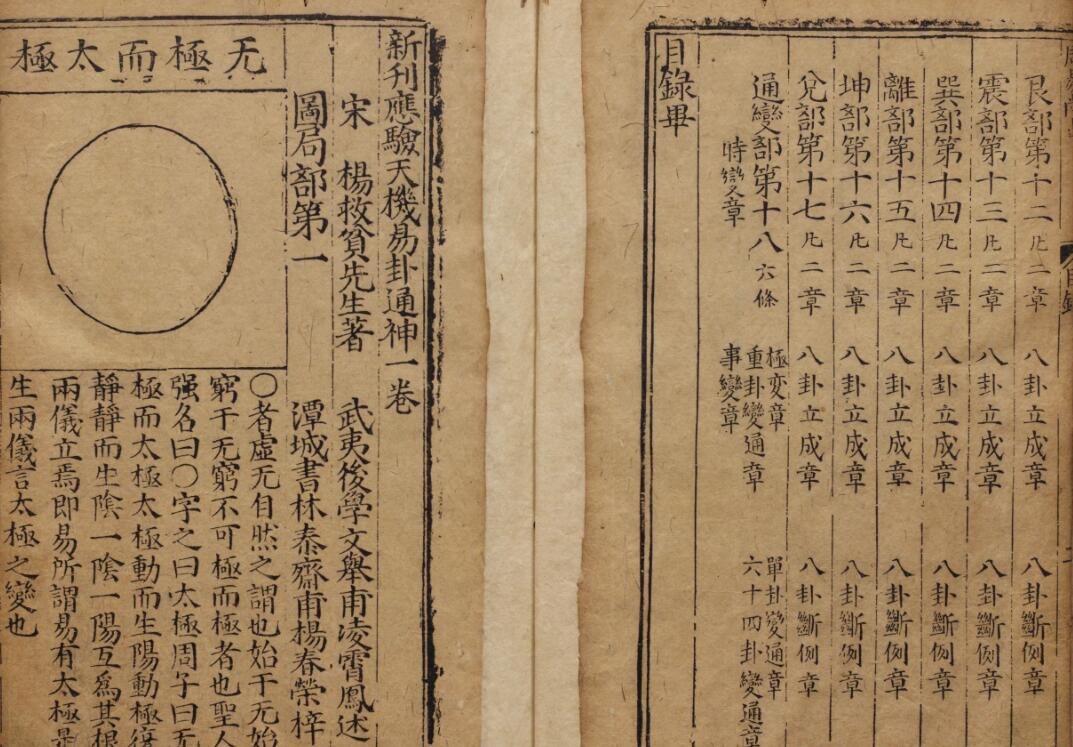 艮部第十二 凡二章 八卦立成章 八卦斷例章
震部第十三 凡二章 八卦立成章 八卦斷例章
巽部第十四 凡二章 八卦立成章 八卦斷例章
離部第十五 凡二章 八卦立成章 八卦斷例章
坤部第十六 凡二章 八卦立成章 八卦斷例章
兌部第十七 凡二章 八卦立成章 八卦斷例章
通變部第十八 六條
極変章 單卦變通章
重卦變通章 六十四卦變通章
時變章 事變章
目錄畢
目錄
新刋應驗天機易卦通神一卷
宋 楊救貧先生著 武夷後學文舉甫淩霄鳳述
潭城書林泰齋甫楊春榮梓
圖局部第一
无極而太極
〇者虛无自然之謂也始于无始
窮于无窮不可極而極者也聖人
强名曰〇字之曰太極周子曰无
極而太極太極動而生陽動極復
靜靜而生陰一陰一陽互為其根
兩儀立焉即易所謂易有太極是
生兩儀言太極之變也